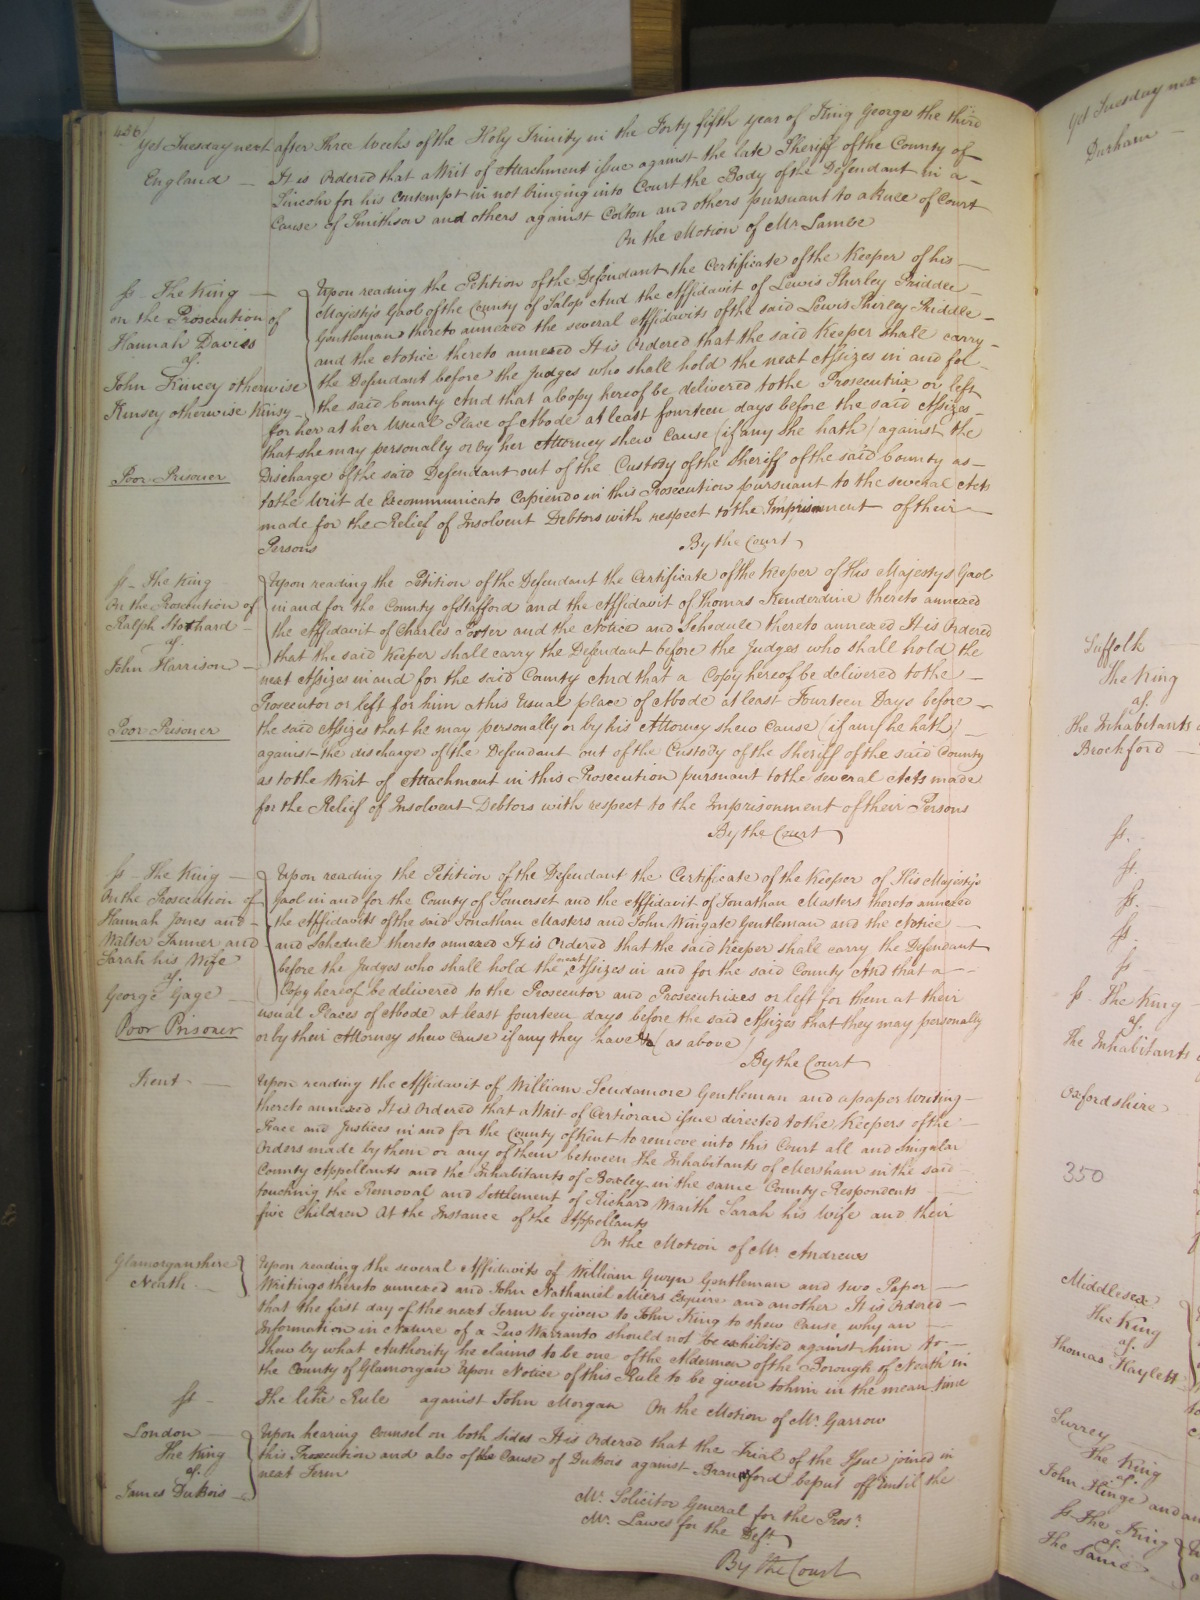 436
Yet Tuesday next after Three Weeks of the Holy Trinity in the Forty fifth year of King George the third
England — It is Ordered that a Writ of Attachment issue against the late Sheriff of the County of
Lincoln for his Contempt in not bringing into Court the Body of the Defendant in a
Cause of Smithson and others against Colton and others pursuant to a Rule of Court
On the Motion of Mr. Lambe
ss – The King
on the Prosecution of
Hannah Davies
agt.
John Kincey otherwise
Kensey otherwise Kinsy
Poor Prisoner
Upon reading the Petition of the Defendant the Certificate of the Keeper of his
Majestys Gaol of the County of Salop And the Affidavit of Lewis Shirley Priddle
Gentleman thereto annexed the several Affidavits of the said Lewis Shirley Priddle
and the Notice thereto annexed It is Ordered that the said Keeper shall carry
the Defendant before the Judges who shall hold the next Assizes in and for
the said County And that a Copy hereof be delivered to the Prosecutrix or left
for her at her Usual Place of Abode at least fourteen days before the said Assizes
that she may personally or by her Attorney shew Cause (if any she hath) against the
Discharge of the said Defendant out of the Custody of the Sheriff of the said County as
to the Writ de Excommunicato Capiendo in this Prosecution pursuant to the several Acts
made for the Relief of Insolvent Debtors with respect to the Imprisonment of their
Persons
By the Court
ss – The King
On the Prosecution of
Ralph Stothard
agt.
John Harrison
Poor Prisoner
Upon reading the Petition of the Defendant the Certificate of the Keeper of His Majestys Gaol
in and for the County of Stafford and the Affidavit of Thomas Kenderdine thereto annexed
the Affidavit of Charles Porter and the Notice and Schedule thereto annexed It is Ordered
that the said Keeper shall carry the Defendant before the Judges who shall hold the
next Assizes in and for the said County And that a Copy hereof be delivered to the
Prosecutor or left for him at his Usual place of Abode at least Fourteen Days before
the said Assizes that he may personally or by his Attorney shew Cause (if any he hath)
against the discharge of the Defendant out of the Custody of the Sheriff of the said County
as to the Writ of Attachment in this Prosecution pursuant to the several Acts made
for the Relief of Insolvent Debtors with respect to the Imprisonment of their Persons
By the Court
ss – The King
On the Prosecution of
Hannah Jones and
Walter Tanner and
Sarah his Wife
agt.
George Gage
Poor Prisoner
Upon reading the Petition of the Defendant the Certificate of the Keeper of His Majestys
Gaol in and for the County of Somerset and the Affidavit of Jonathan Masters thereto annexed
the Affidavits of the said Jonathan Masters and John Wingate Gentleman and the Notice
and Schedule thereto annexed It is Ordered that the said Keeper shall carry the Defendant
before the Judges who shall hold the next Assizes in and for the said County And that a
Copy hereof be delivered to the Prosecutor and Prosecutrixes or left for them at their
usual Places of Abode at least fourteen days before the said Assizes that they may personally
or by their Attorney shew Cause if any they have &c (as above)
By the Court
Kent — Upon reading the Affidavit of William Scudamore Gentleman and a paper Writing
thereto annexed It is Ordered that a Writ of Certiorari issue directed to the Keepers of the
Peace and Justices in and for the County of Kent to remove into this Court all and Singular
Orders made by them or any of them between the Inhabitants of Mersham in the said
County Appellants and the Inhabitants of Boxley in the same County Respondents
touching the Removal and Settlement of Richard Wraith Sarah his Wife and their
five Children At the Instance of the Appellants
On the Motion of Mr. Andrews
Glamorganshire
Neath
Upon reading the several Affidavits of William Gwyn Gentleman and two Paper
Writings thereto annexed and John Nathaniel Miers Esquire and another It is Ordered
that the first day of the next Term be given to John King to shew Cause why an
Information in Nature of a Quo Warranto should not be exhibited against him to
shew by what Authority he claims to be one of the Aldermen of the Borough of Neath in
the County of Glamorgan Upon Notice of this Rule to be given to him in the mean time
ss – The like Rule against John Morgan On the Motion of Mr. Garrow
London
The King
agt.
James DuBois
Upon hearing Counsel on both sides It is Ordered that the Trial of the Issue joined in
this Prosecution and also of the Cause of DuBois against be put off until the
next Term
Mr. Solicitor General for the Prosr.
Mr. Lawes for the Deft.
By the Court
Yet Tuesday next
Durham
Suffolk
The King
agt.
The Inhabitants
Brockford
ss.
ss.
ss.
ss.
ss
ss – The King
agt.
The Inhabitants
Oxfordshire
350
Middlesex
The King
agt.
Thomas Haylett
Surrey
The King
agt.
John Hinge and
ss – The King
agt.
The Same